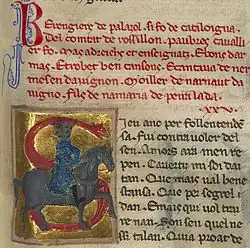 Berengiers de palazol si fo de cataloigna.
Del comtat de rossillon. paubres cavalli
er fo. mas adreichz et enseignatz. e bons dar
mas. Et trobet ben cansons. E cantava de na
mesen davignon. Moiller de narnaut da
vigno. fils de na maria de peiralada.
.xxv.
Ieu anc per folletenden
sa. fui contra voler del
sen. Amors ara men re
pen. mi soi dar
tan. Que mais val bene
stansa. Que per
dan. Emais qui vol tra
re nan. Son sen quel ne
talan. Quia proar de